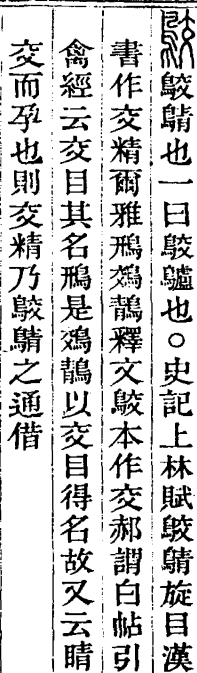 鵁鶄也一曰鵁鸕也○史記上林賦鵁鶄旋目漢
書作交精爾雅鳽鵁鶄釋文鵁本作交郝謂白帖引
禽經云交目其名鳽是鵁鶄以交目得名故又云睛
交而孕也則交精乃鵁鶄之通借